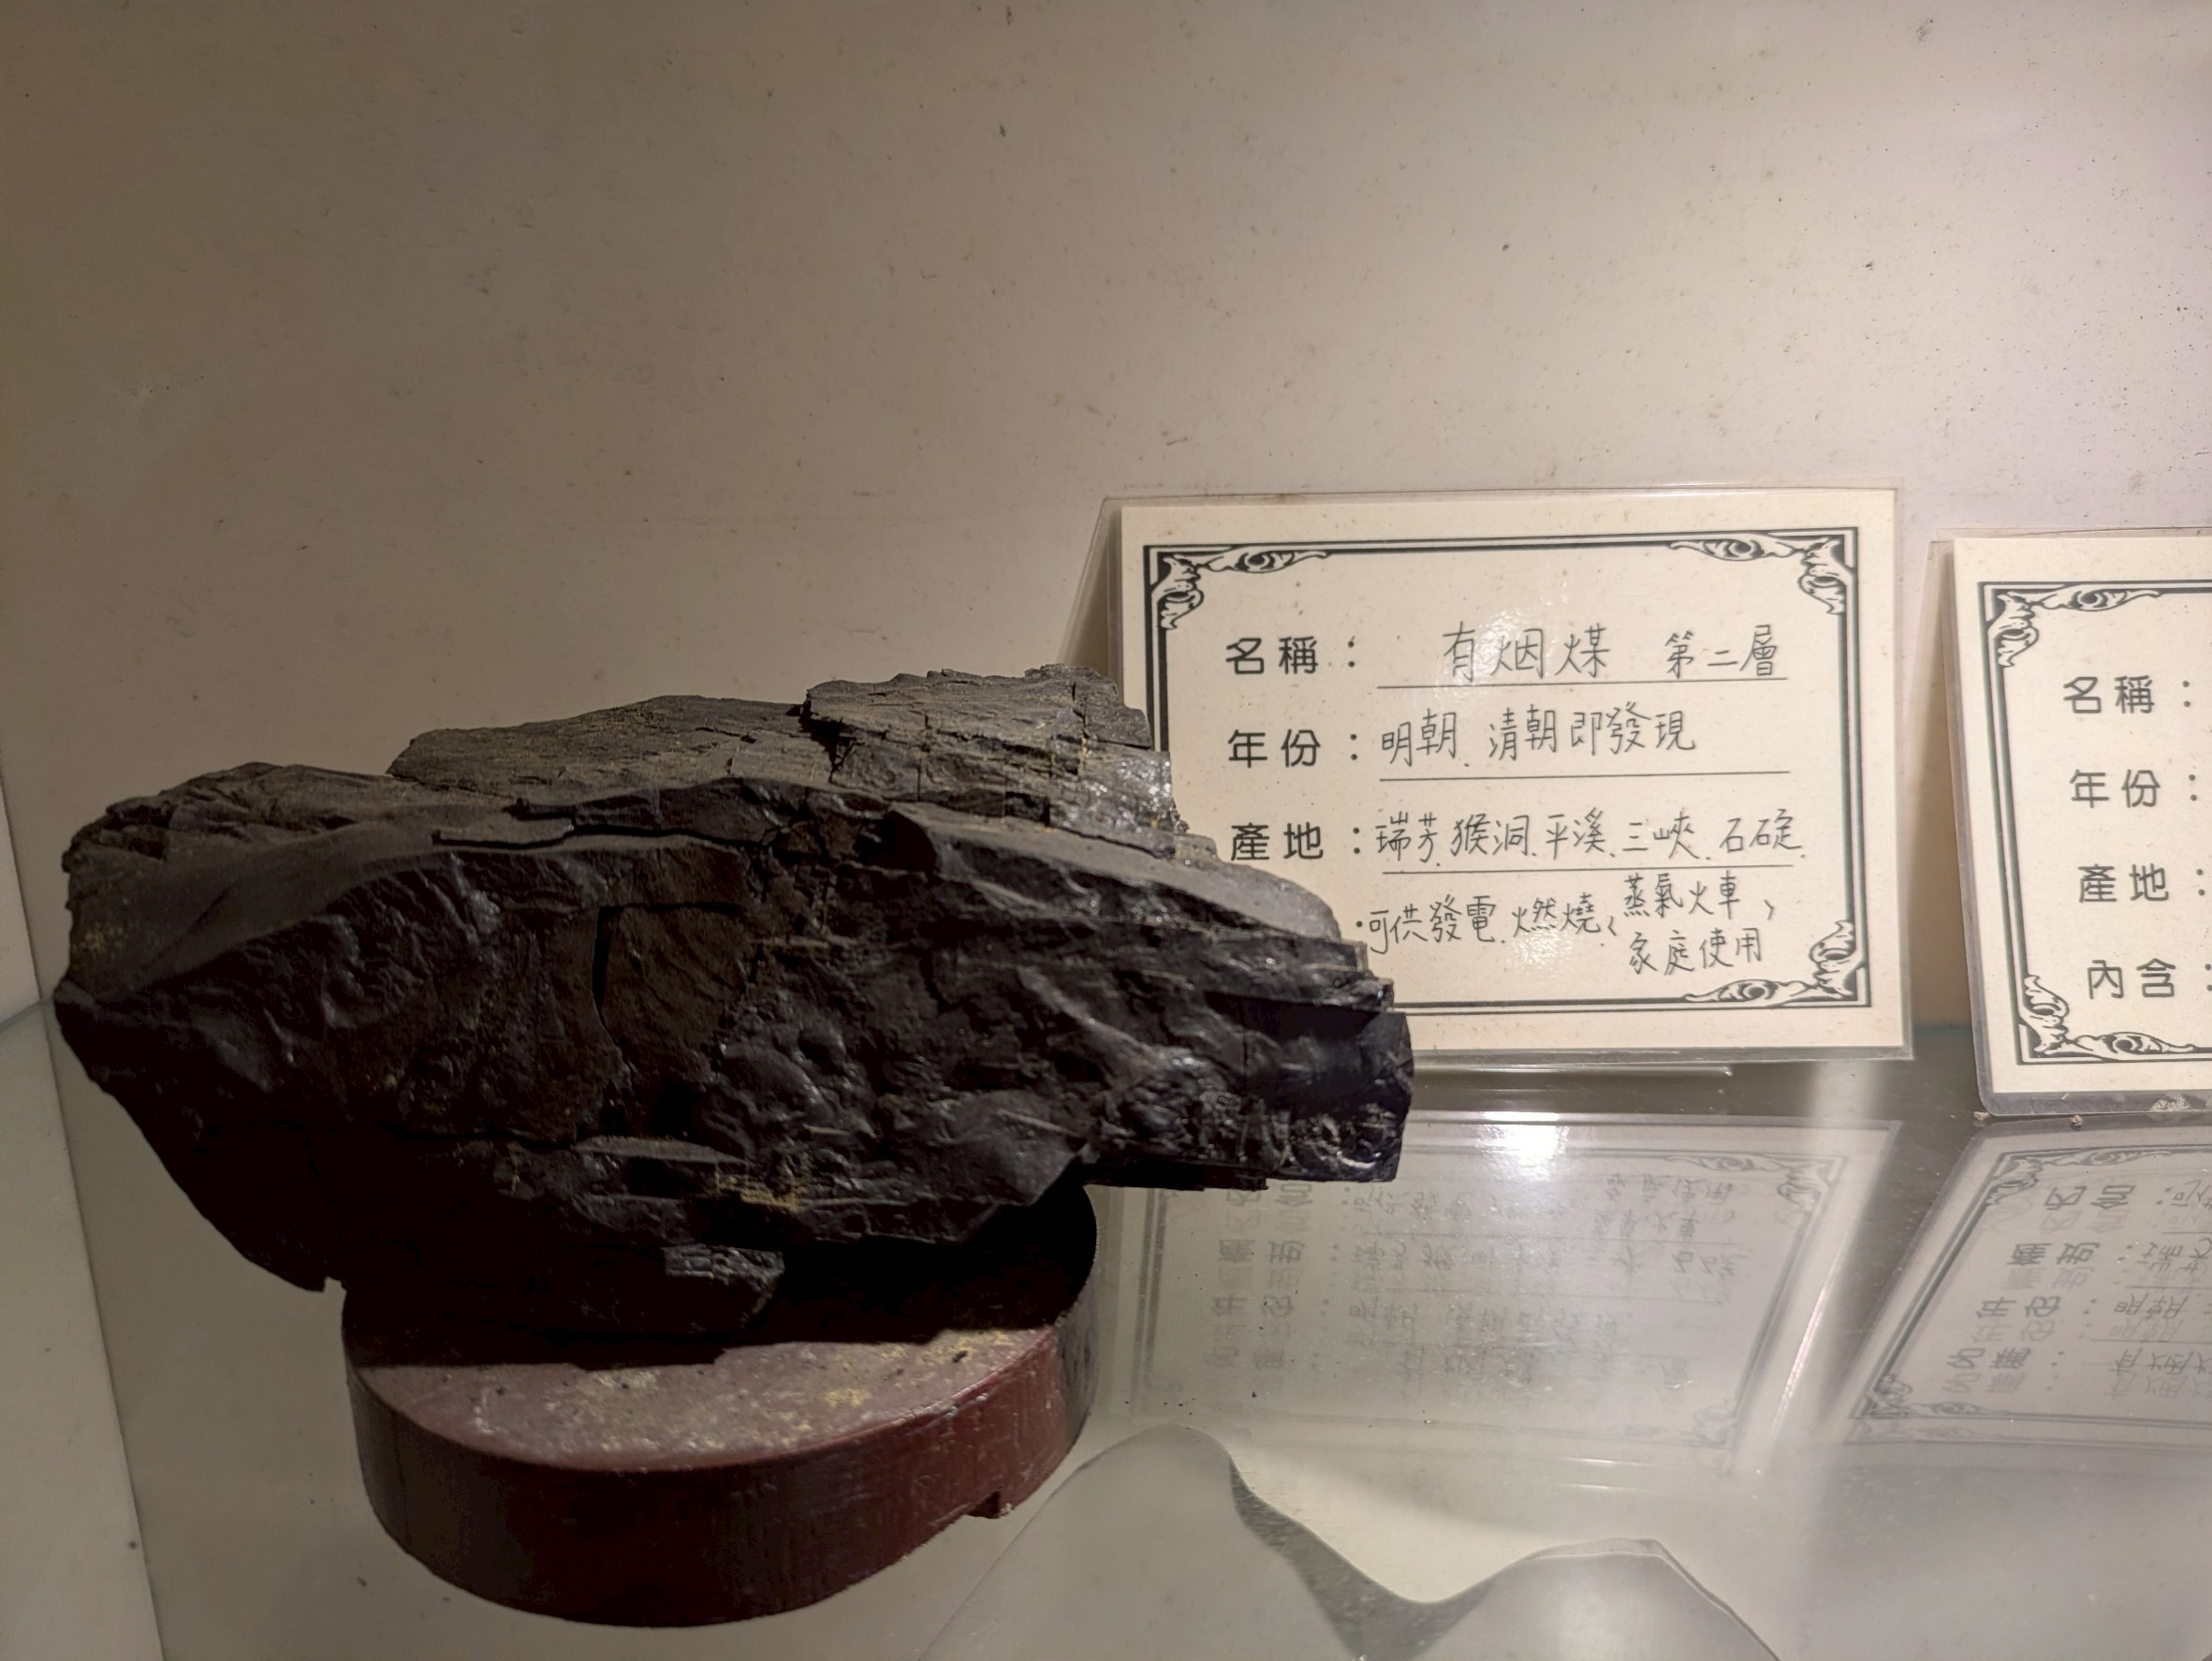 名稱： 有烟煤 第二層
年份：明朝、清朝即發現
產地：瑞芳、猴洞、平溪、三峽、石碇、
：可供發電、燃燒、蒸氣火車、
家庭使用
名稱：
年份：
產地：
內含：